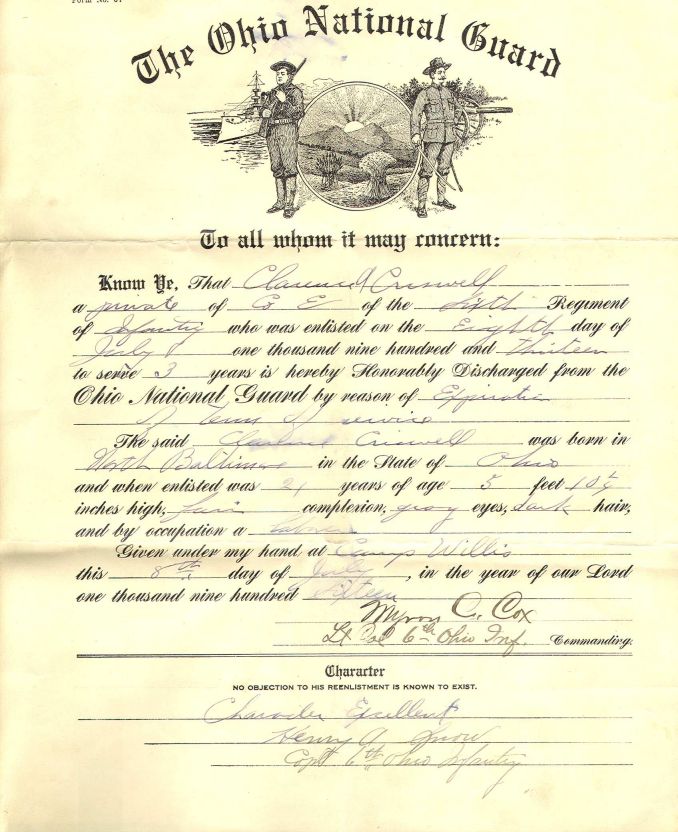 The Ohio National Guard
To all whom it may concern:
Know Ye, That Clarence Criswell
a private of Co E of the Sixth Regiment
of Infantry who was enlisted on the Eighth day of
July one thousand nine hundred and thirteen
to serve 3 years is hereby Honorably Discharged from the
Ohio National Guard by reason of Expiration
of Term of service
The said Clarence Criswell was born in
North Baltimore in the State of Ohio
and when enlisted was 21 years of age 5 feet
inches high, fair complexion, gray eyes, dark hair,
and by occupation a laborer
Given under my hand at Camp Willis
this 8th day of July, in the year of our Lord
one thousand nine hundred sixteen
Myron C. Cox
Lt Col 6th Ohio Inf. Commanding.
Character
NO OBJECTION TO HIS REENLISTMENT IS KNOWN TO EXIST.
Character Excellent
Henry A.
Capt 6th Ohio Infantry